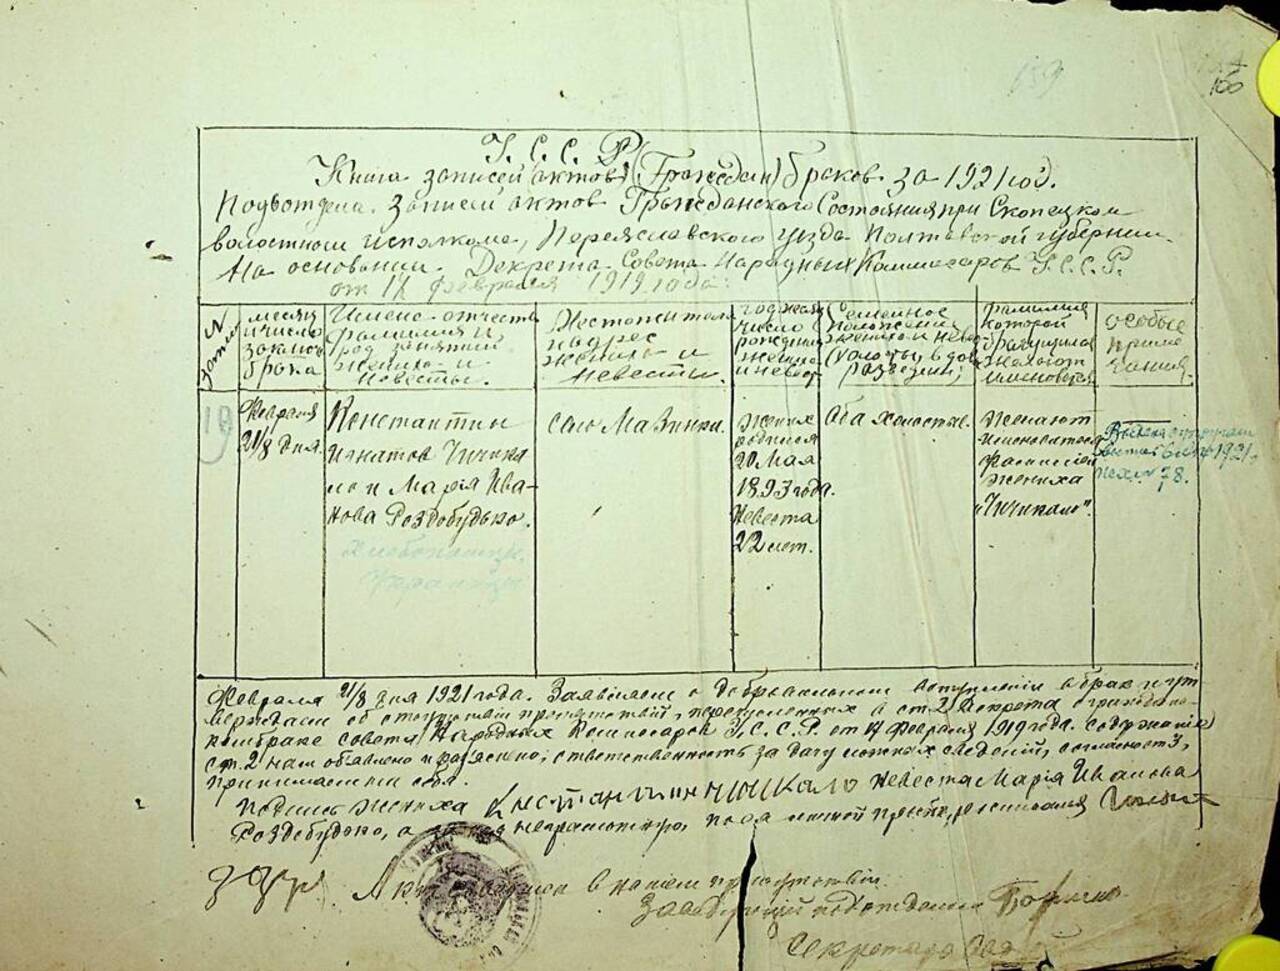 159
160
У. С. С. Р.
Книга записей актов (Граждан) браков за 1921 год.
Подвотдела записей актов Гражданского Состояния при Скопецком
волостном исполкоме, Переяславского уезда Полтавской губернии.
На основании Декрета Совета Народных Коммисаров У.С.С.Р.
от 17 февраля 1919 года:
N
записи
месяц
и число
заключ
брака
Имена отчеств
фамилия и
род занятий
жениха и
Невесты.
Местожител
адрес
жениха и
Невесты.
год месяц
число
рождения
жениха
и невес
Семейное
положение
жениха и невес
(холосты, вдов
разведен)
фамилия
которой
брачущиеся
желают
именоваться
особые
приме
чания
19
Февраля
21/8 дня.
Константин
Игнатов Чичка
ло и Марія Ива-
нова Роздобудько.
Хлебопашцы.
село Мазинки.
Жених
родился
20 Мая
1893 года.
Невеста
22 лет.
Оба холостые.
Желают
именоваться
фамилией
жениха
"Чичкало".
1921
N 78.
Февраля 21/8 дня 1921 года. Заявляем о добровольном вступлении в брак и ут
верждаем об отсутствии препятствий, перечисленных в ст. 2 Декрета о граждано-
ком браке совета Народных Комисаров У.С.С.Р. от 17 Февраля 1919 года. содержание
ст. 2 нам объявлено и раз'яснено; ответственность за дачу ложных сведений, согласно ст 3,
принимаем на себя.
Подпись жениха Константин Чичкало Невеста Марія Иванова
Роздобудько, а за неграмотную, по личной просьбе, росписался
Акт в нашем присутствіи.
Заведующий подотделом
Секретарь